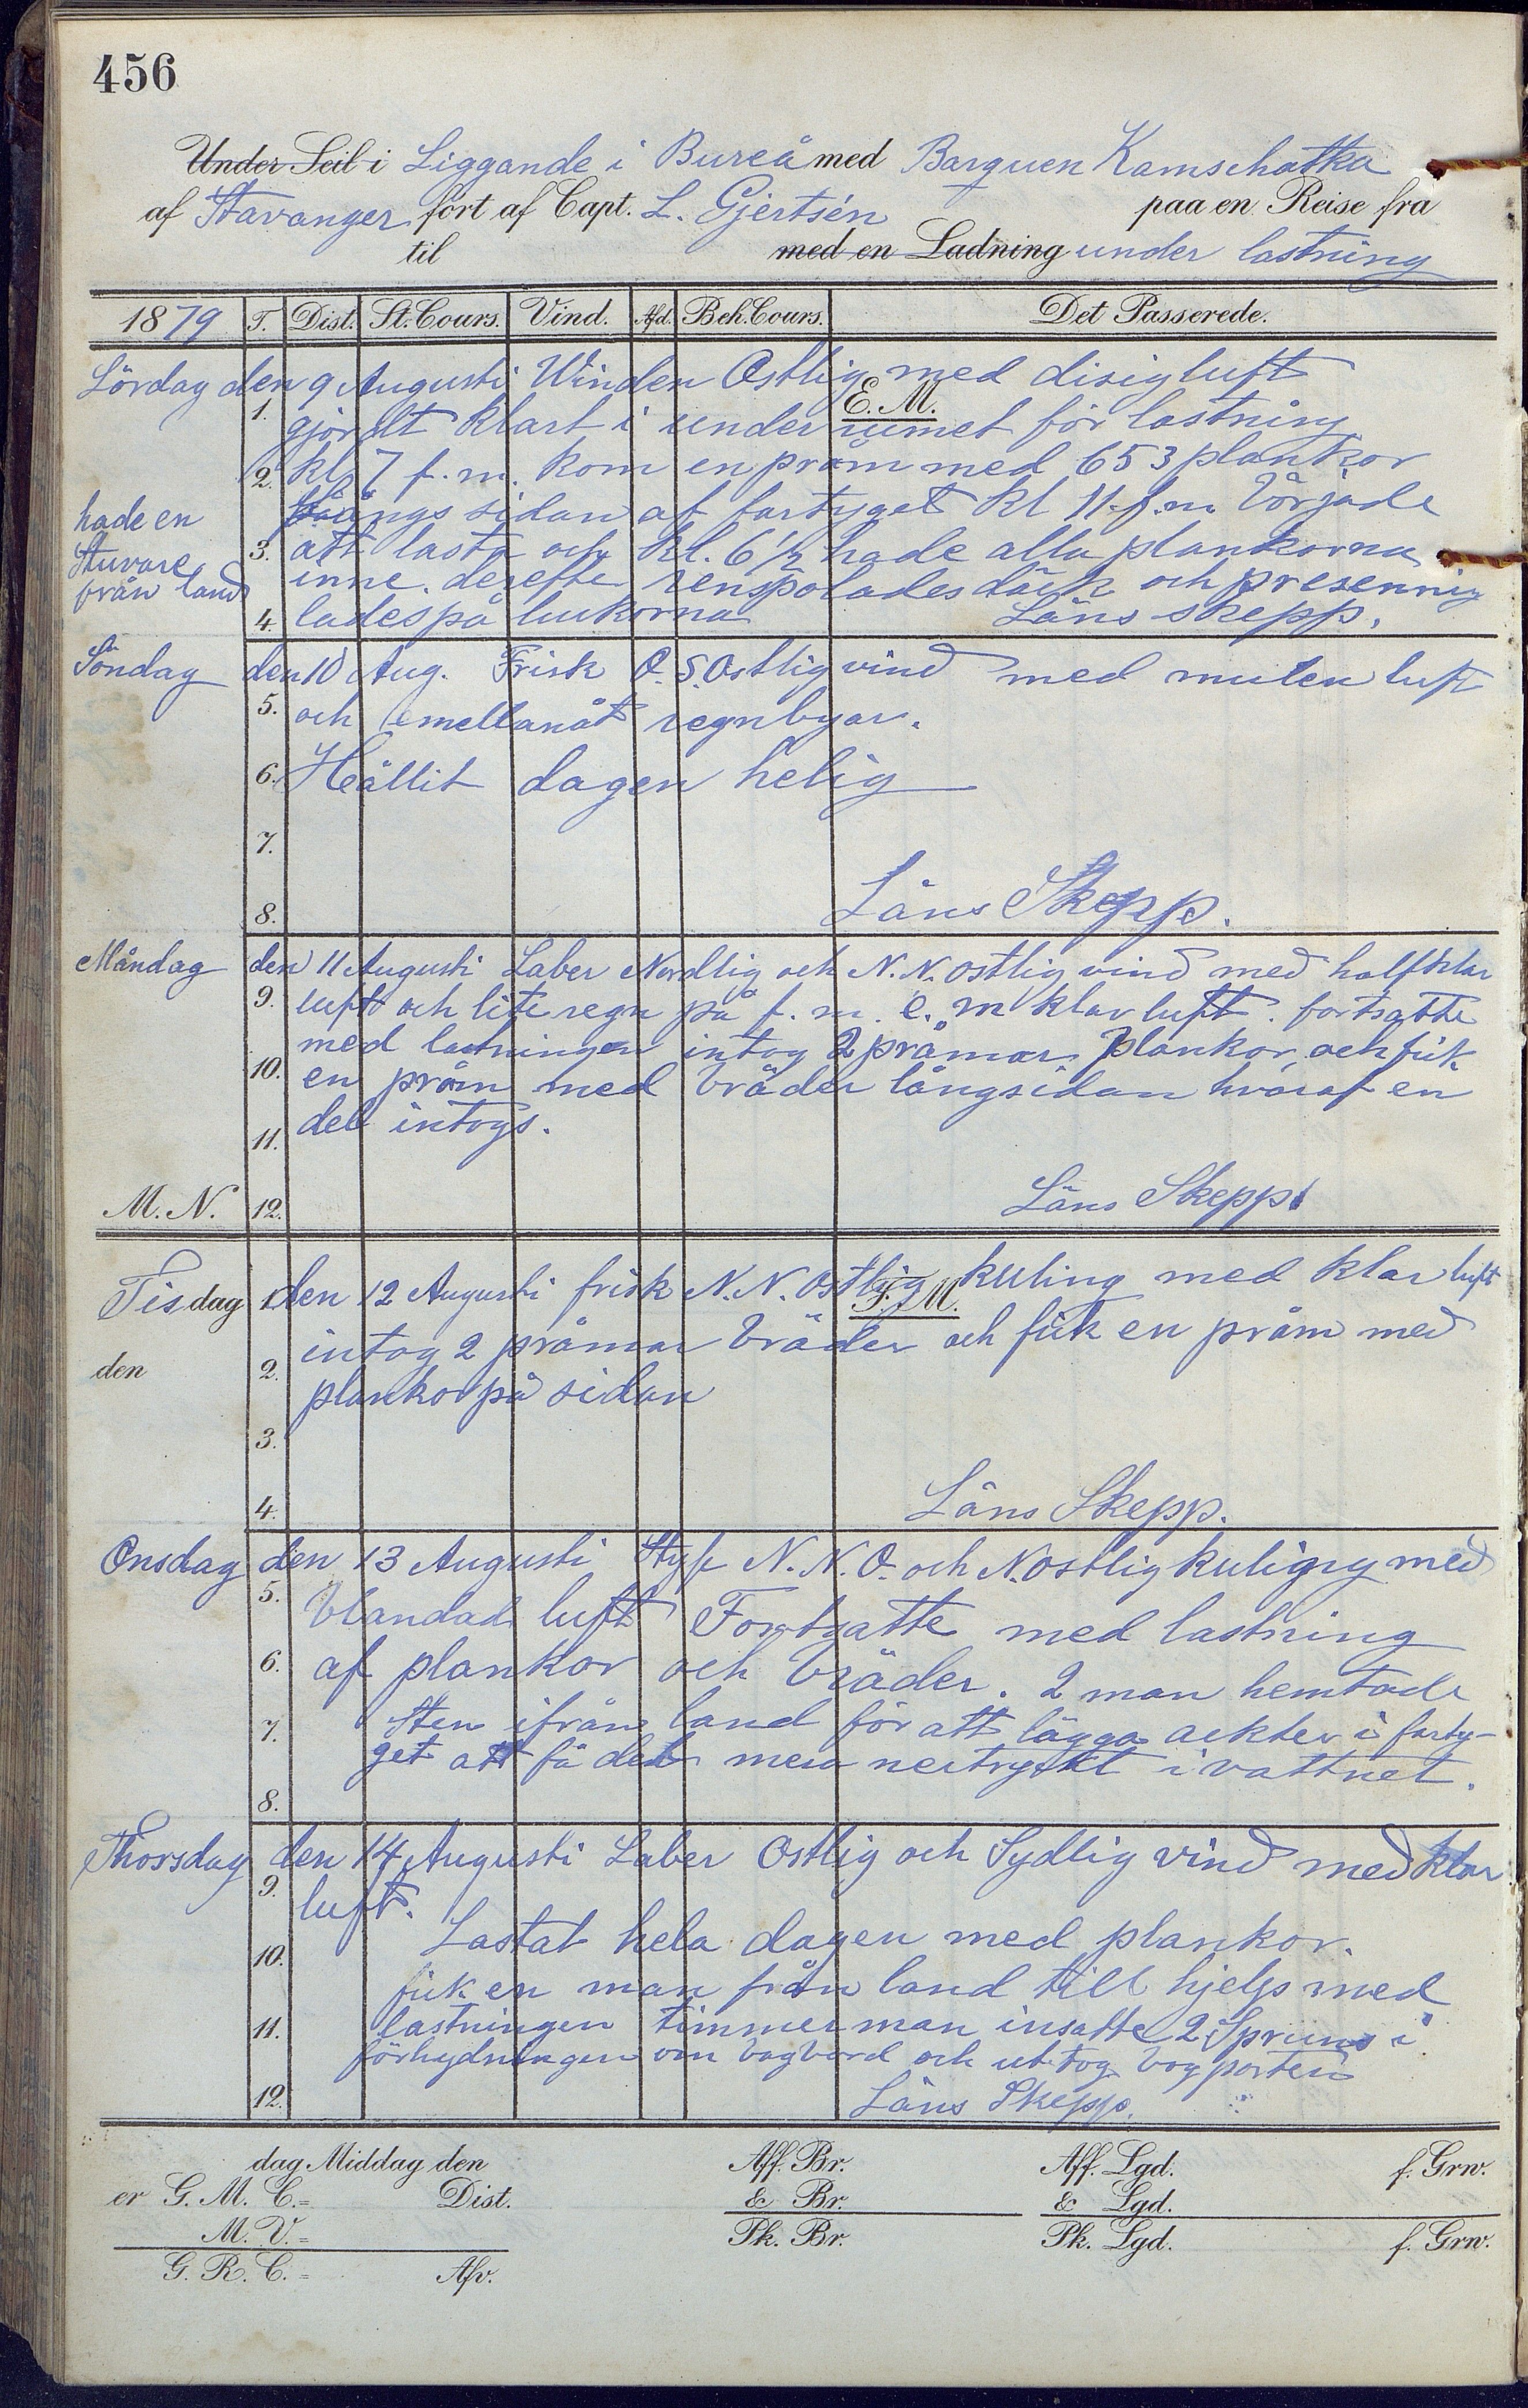 456
Under Seil i Liggande i Bureå med Barquen Kamschatka
af Stavanger fört af Capt. L. Gjertsén paa en Reise fra
til med en Ladning under lastning
1879 T. Dist. St. Cours. Vind. Afd. Beh. Cours. Det Passerede.
Lördag den 9 Augusti Winden Ostlig med disig luft
E. M.
1. gjordt klart i underrumet för lastning
2. kl 7 f.m. kom en pråm med 653 plankor
långs sidan af fartyget kl 11 f.m började
hade en
Stuvare
från land
3. att lasta och kl. 6 1/2 hade alla plankorna
inne. derefter renspolades däck och presenning
4. lades på luckorna Läns skepp.
Söndag den 10 Aug. Frisk O. S. Ostlig vind med mulen luft
5. och emellanåt regnbyar.
6. Hållit dagen helig
7.
8. Läns Skepp.
Måndag den 11 Augusti Laber Nordlig och N. N. ostlig vind med halfklar
9. luft och lite regn på f. m. e. m klar luft. fortsatte
med lastningen intog 2 pråmar plankor och fick
10. en pråm med bräder långsidan hvaraf en
11. del intogs.
M. N. 12. Läns Skepp.
Tisdag 1. den 12 Augusti frisk N. N. Ostlig kuling med klar luft
F. M.
intog 2 pråmar bräder och fick en pråm med
den 2. plankor på sidan
3.
4. Läns Skepp.
Onsdag den 13 Augusti Styf N. N. O. och N. ostlig kuling med
5. blandad luft Fortsatte med lastning
6. af plankor och bräder. 2 man hemtade
7. sten ifrån land för att lägga akter i farty-
get att få det mera nertryckt i vattnet.
8.
Thorsdag den 14 Augusti Laber Ostlig och Sydlig vind med klar
9. luft.
10. Lastat hela dagen med plankor.
fick en man från land till hjelp med
11. lastningen timmerman insatte 2 Spruns i
förhydningen om bagbord och uttog bogporten
12. Läns Skepp.
dag Middag den Aff. Br. Aff. Lgd. f. Grw.
er G. M. C. = Dist. & Br. & Lgd.
M. V. = Pk. Br. Pk. Lgd. f. Grw.
G. R. C. = Afv.